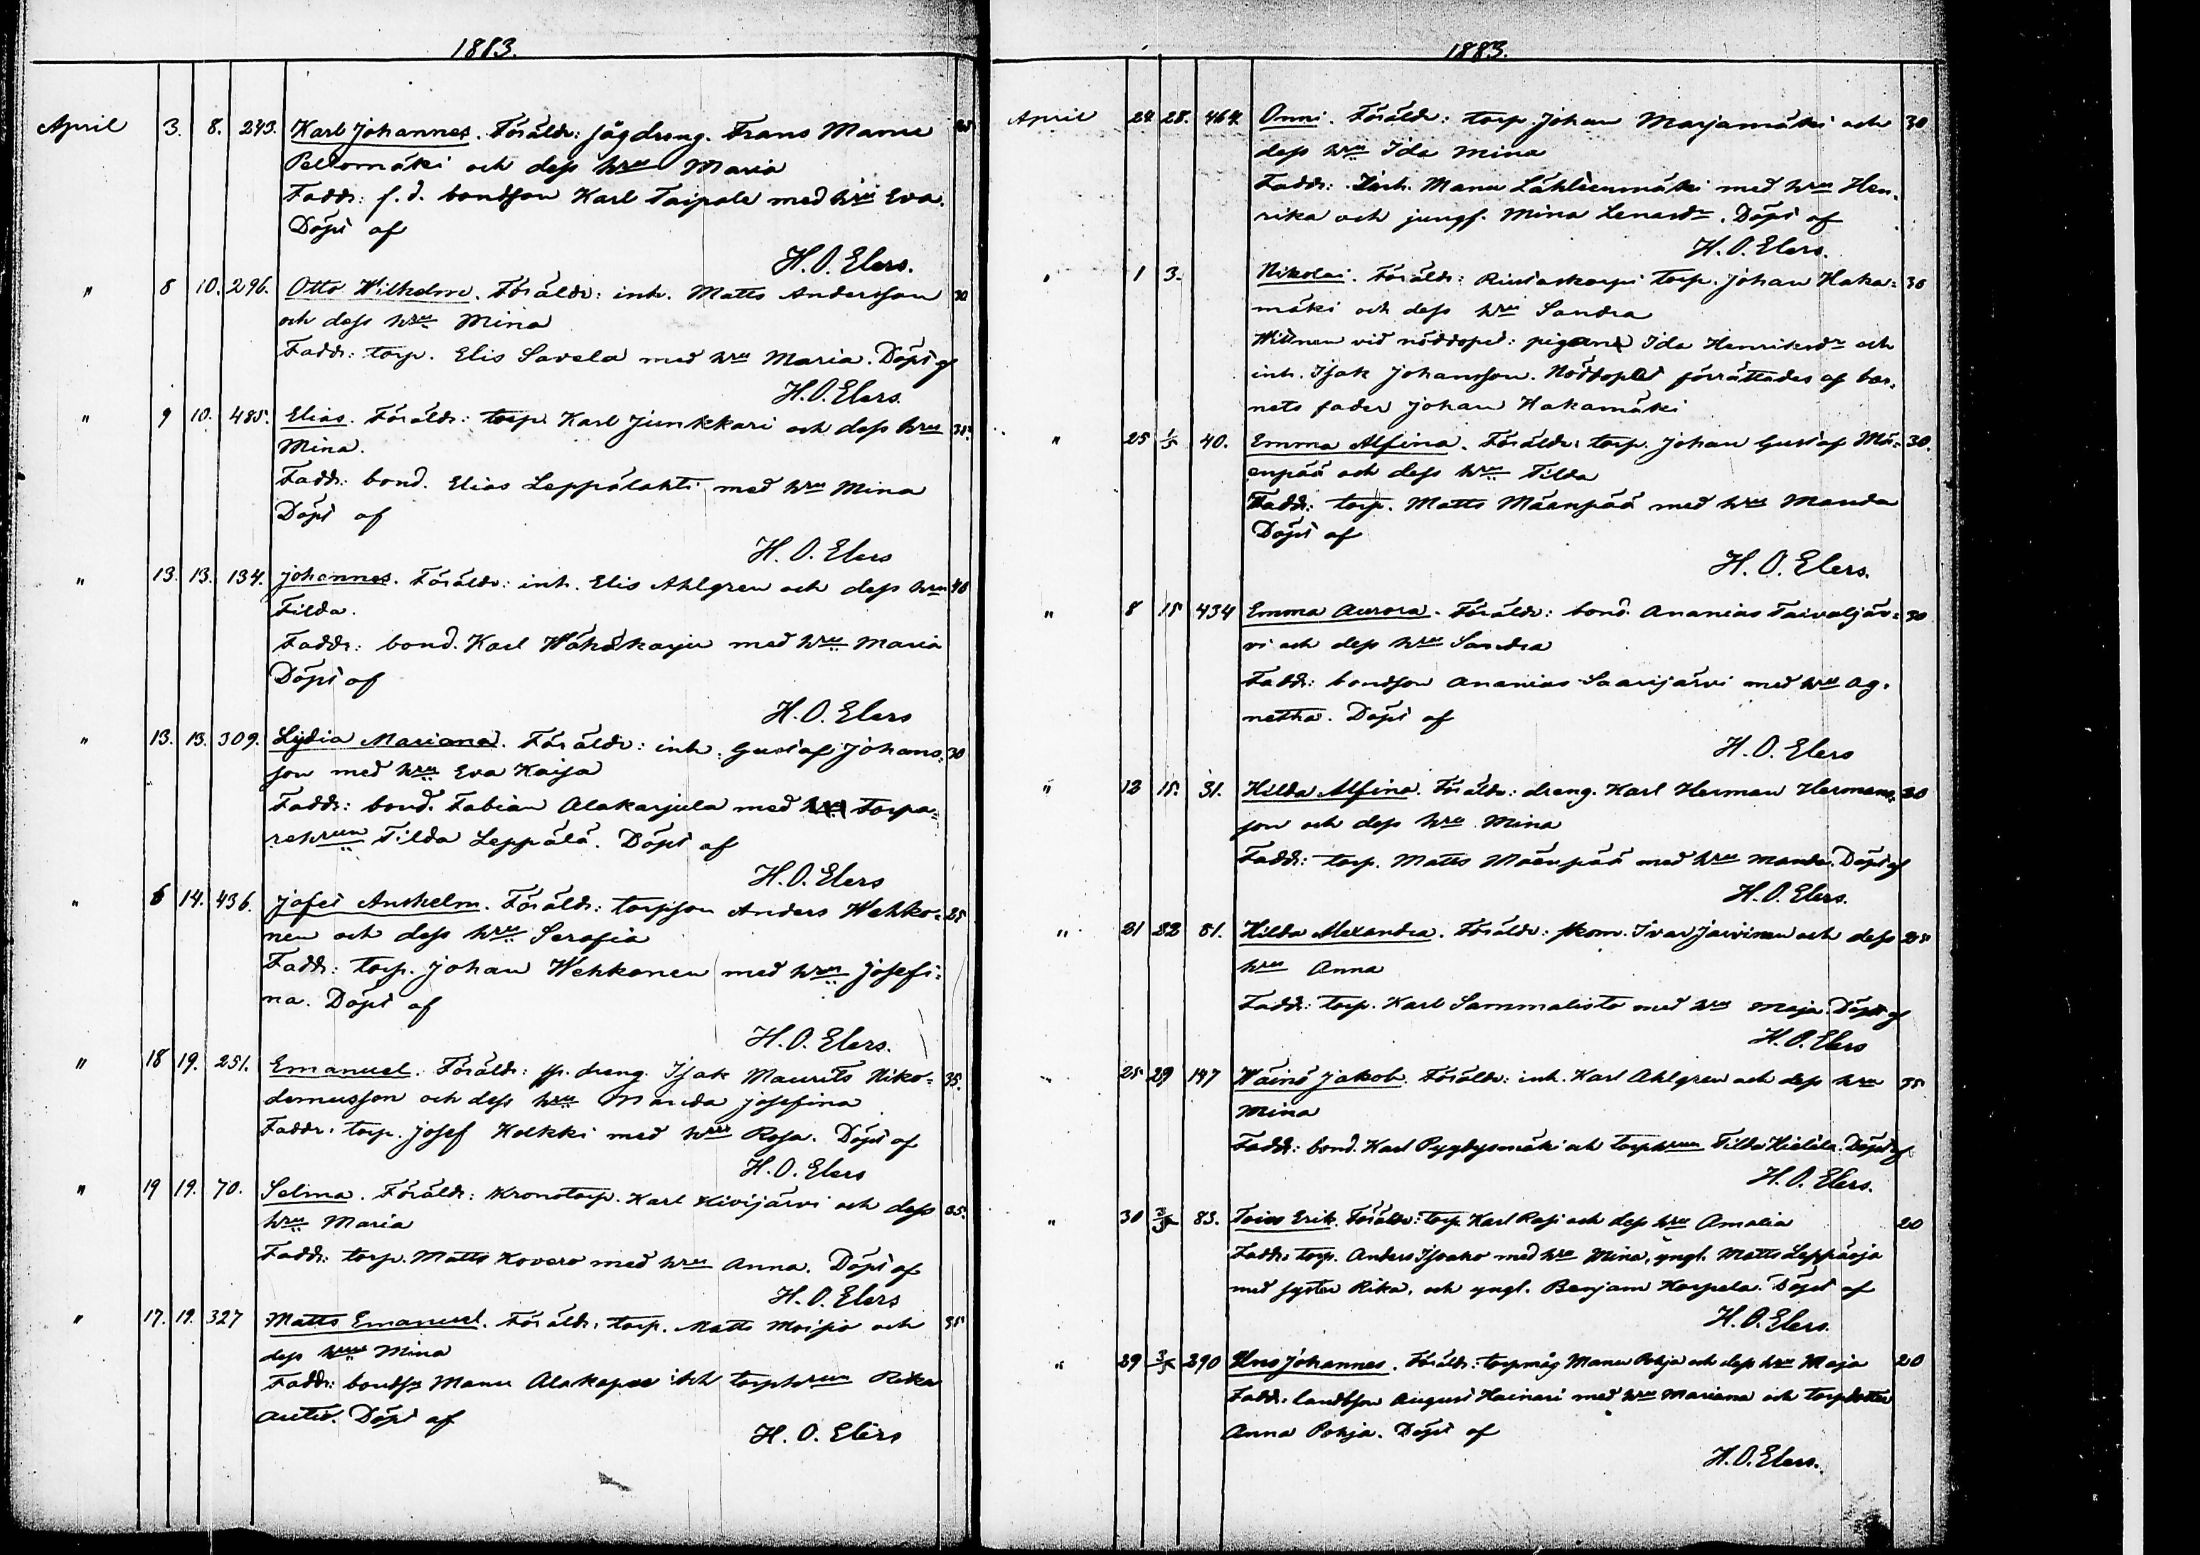 1883.
April 3. 8. 243. Karl Johannes. Föräldr: jägdreng. Frans Manu
Peltomäki och dess hru Maria
Faddr: f.d. bondson Karl Taipale med hru Eva.
Döpt af
H. O. Elers.
" 8 10. 296. Otto Wilhelm. Föräldr: inh. Matts Andersson 30
och dess hru Mina
Faddr: torp. Elis Savela med hru Maria. Döpt af
H. O. Elers.
" 9 10. 485. Elias. Föräldr: torp. Karl Junkkari och dess hru
Mina.
Faddr: bond. Elias Leppälahti med hru Mina
Döpt af
H. O. Elers
" 13. 13. 134. Johannes. Föräldr: inh. Elis Ahlgren och dess hru 40
Tilda.
Faddr: bond. Karl Wähäkarju med hru Maria
Döpt af
H. O. Elers
" 13. 13. 309. Lydia Mariana. Föräldr: inh. Gustaf Johans= 30
son med hru Eva Kaisa
Faddr: bond. Fabian Alakarjula med hru torpa=
rehrun Tilda Leppälä. Döpt af
H. O. Elers
" 6 14. 436. Josef Anshelm. Föräldr: torpson Anders Wehko= 25
nen och dess hru Serafia
Faddr: torp. Johan Wehkonen med hru Josefi=
na. Döpt af
H. O. Elers.
" 18 19. 251. Emanuel. Föräldr: fr. dreng Isak Maurits Niko= 35.
demusson och dess hru Manda Josefina
Faddr: torp. Josef Holkki med hru Rosa. Döpt af
H. O. Elers
" 19 19. 70. Selma. Föräldr: kronotorp. Karl Kivijärvi och dess 35.
hru Maria
Faddr: torp. Matts Kovero med hru Anna. Döpt af
H. O. Elers
" 17. 19. 327 Matts Emanuel. Föräldr: torp. Matts Moisio och 35
dess hru Mina
Faddr: bonds. Manu och torphrun Rika
Döpt af
H. O. Elers
1883.
April 24 28. 464. Onni. Föräldr: torp. Johan Marjamäki och 30
dess hru Ida Mina
Faddr: Inh. Manu Lähteenmäki med hru Hen=
rika och jungf. Mina Lenardr. Döpt af
H. O. Elers.
" 1 3. Nikolai. Föräldr: torp. Johan Haka= 30
mäki och dess hru Sandra
Wittnen vid nöddopet: pigan Ida Henriksdr och
inh. Isak Johansson. Nöddopet förrättades af bar=
nets fader Johan Hakamäki
" 25 1/5 40. Emma Alfina. Föräldr: torp. Johan Gustaf Mä= 30.
enpää och dess hru Tilda
Faddr: torp. Matts Mäenpää med hru Manda
Döpt af
H. O. Elers.
" 8 15 434 Emma Aurora. Föräldr: bond. Ananias Taivaljär= 30
vi och dess hru Sandra
Faddr: bondson Ananias Saarijärvi med hru Ag=
netha. Döpt af
H. O. Elers
" 12 15. 31. Hilda Alfina. Föräldr: dreng. Karl Herman Hermans= 30
son och dess hru Mina
Faddr: torp. Matts Mäenpää med hru Manda. Döpt af
H. O. Elers.
" 21 22 81. Hilda Alexandra. Föräldr: skom. Ivar Järvinen och dess 25
hru Anna
Faddr: torp. Karl Sammalisto med hru Maja. Döpt af
H. O. Elers
" 25 29 147 Wäinö Jakob. Föräldr: inh. Karl Ahlgren och dess hru 35
Mina
Faddr: bond. Karl och torphrun Tilda Döpt af
H. O. Elers.
" 30 83. Toivo Erik. Föräldr: torp. Karl Rasi och dess hru Amalia 20
Faddr: torp. Anders Isoaho med hru Mina, yngl. Matts Leppäoja
med syster Rika, och yngl. Benjam Korpela. Döpt af
H. O. Elers.
" 29 3/5 290 Uno Johannes. Föräldr: torpmåg Manu Pohja och dess hru Maja 20
Faddr: landbson August Hainari med hru Mariana och torpdotter
Anna Pohja. Döpt af
H. O. Elers.